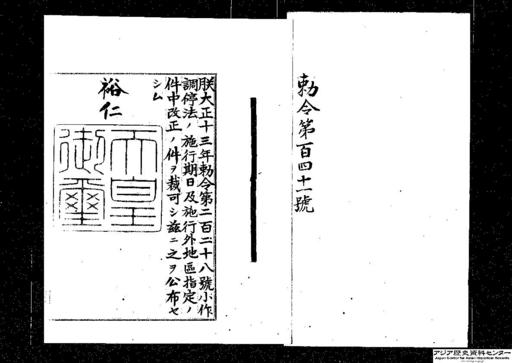 勅令第百四十一號
朕大正十三年勅令第二百二十八號小作
調停法ノ施行期日及施行外地區指定ノ
件中改正ノ件ヲ裁可シ茲ニ之ヲ公布セ
シム
裕仁
天皇
御璽
アジア歴史資料センター
Japan Center for Asian Historical Records